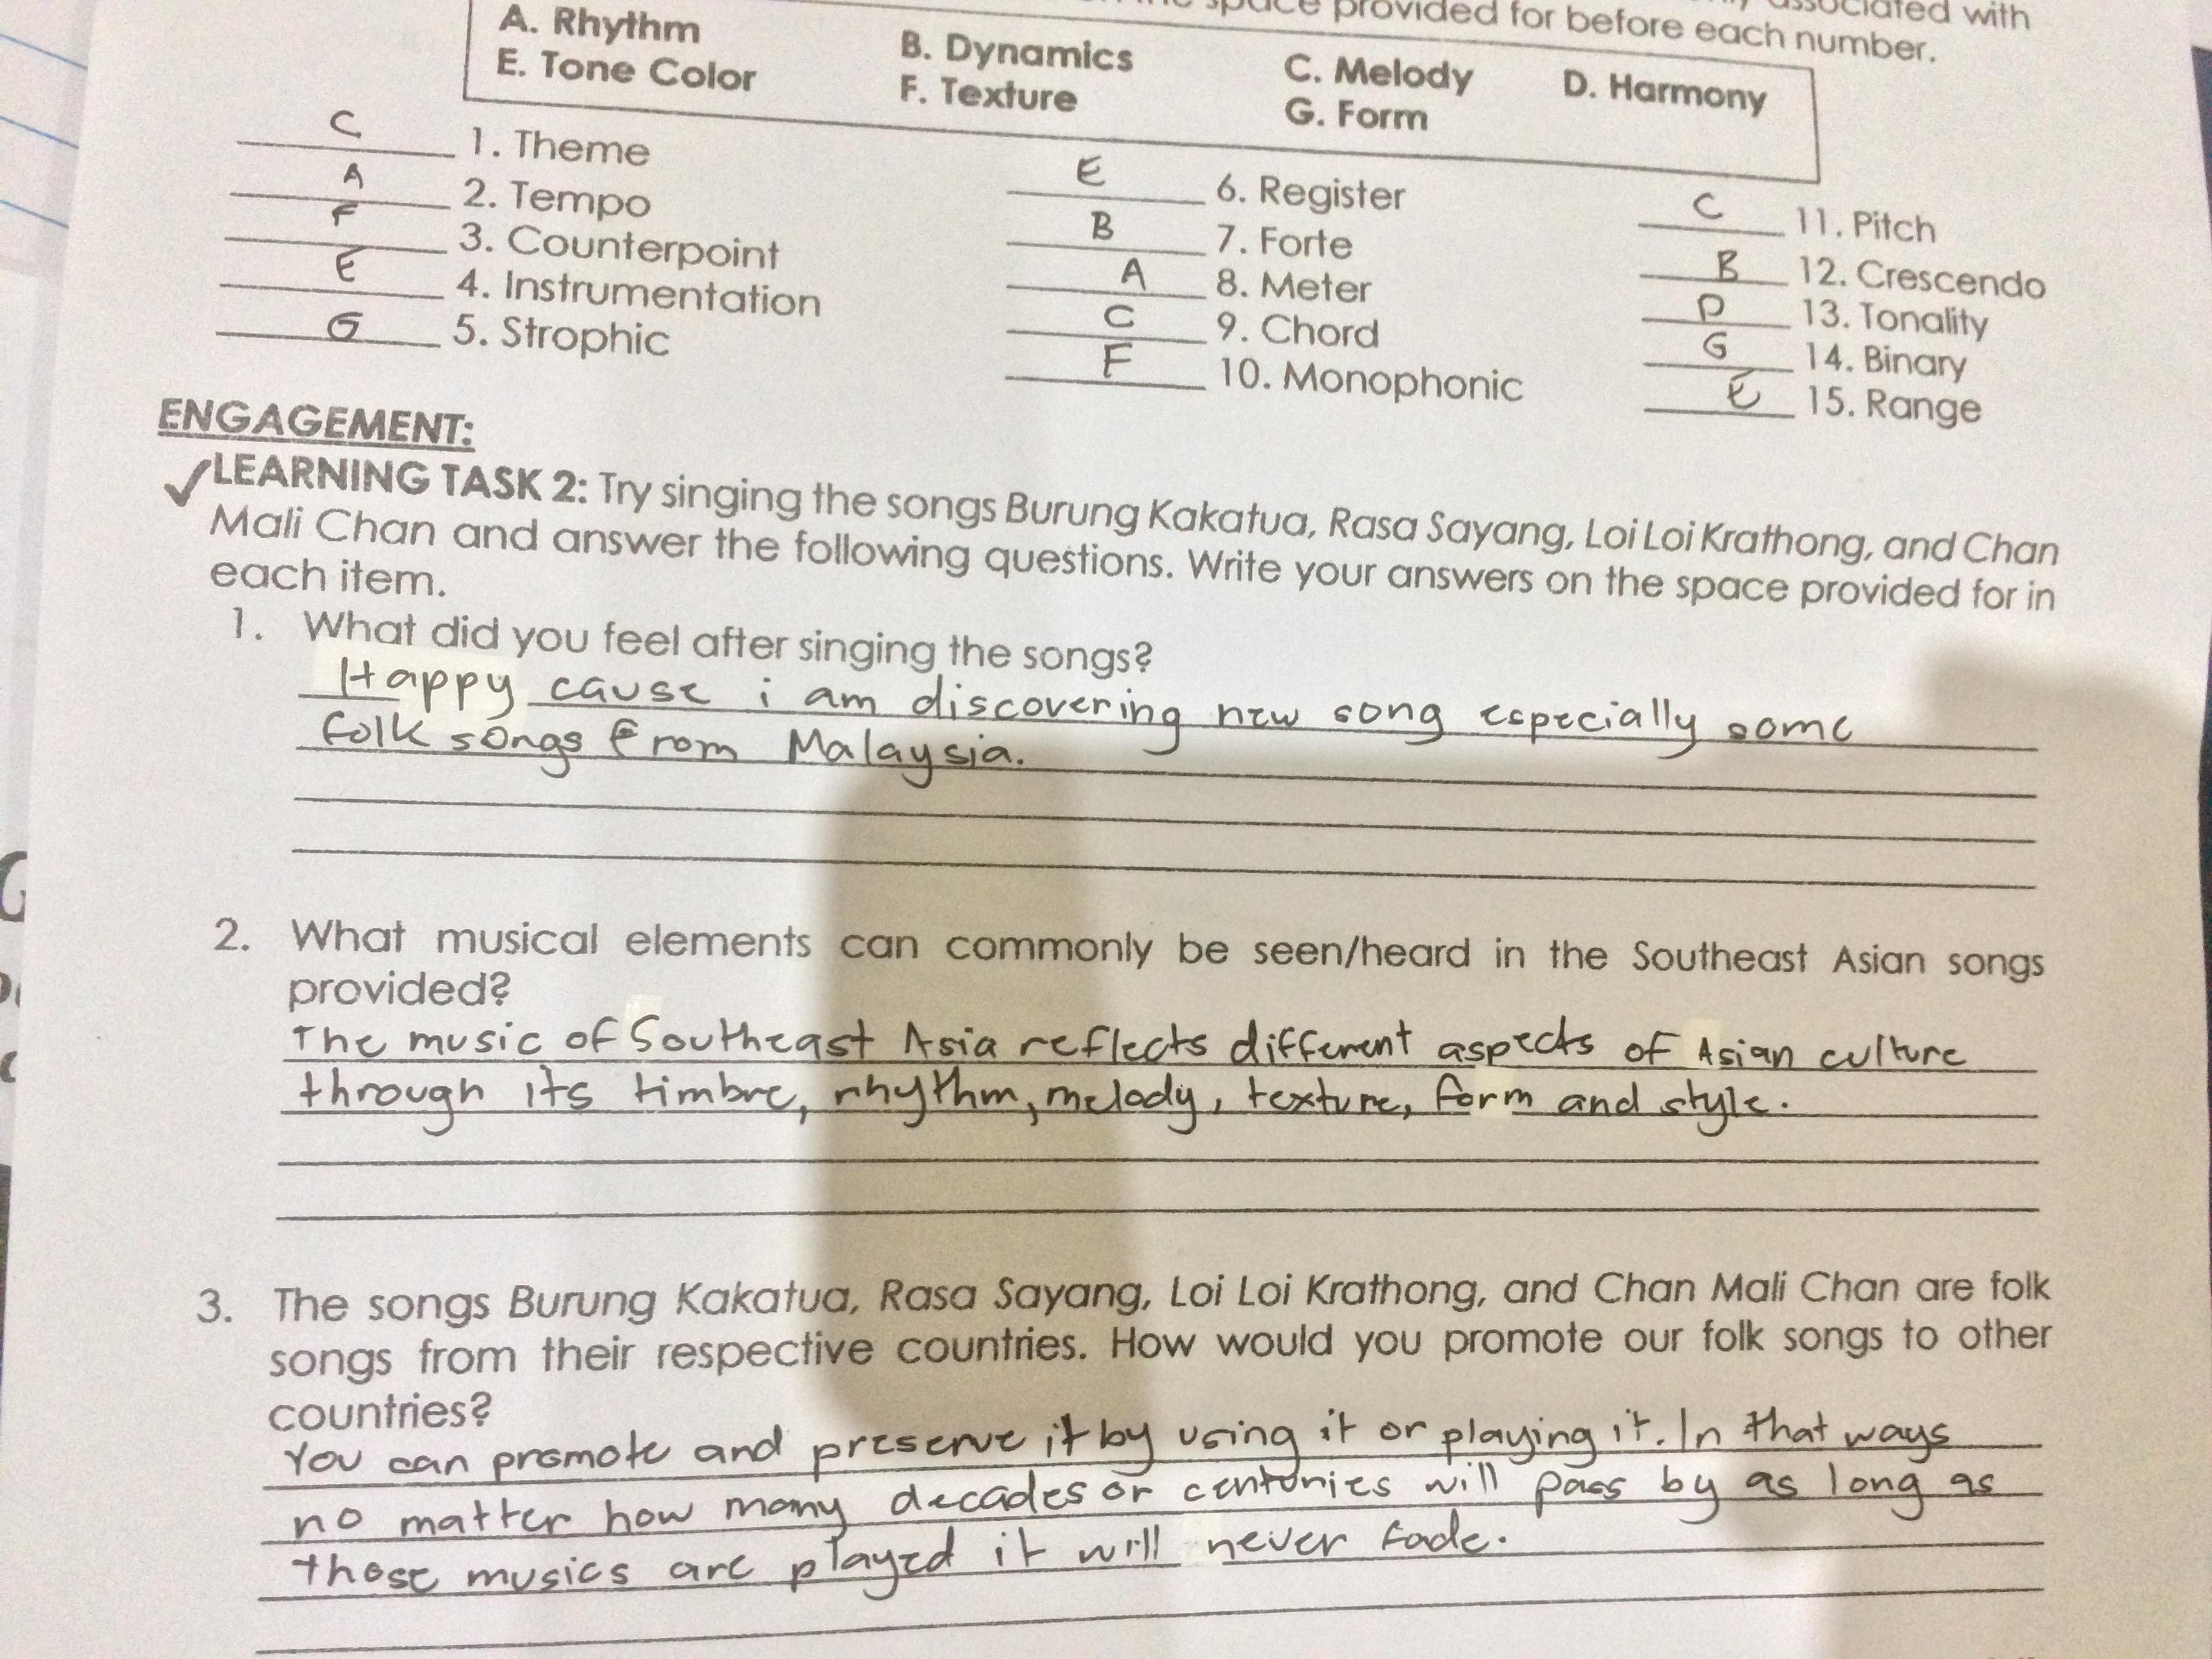 associated with
space provided for before each number.
A. Rhythm B. Dynamics C. Melody D. Harmony
E. Tone Color F. Texture G. Form
C 1. Theme
A 2. Tempo
F 3. Counterpoint
E 4. Instrumentation
G 5. Strophic
E 6. Register
B 7. Forte
A 8. Meter
C 9. Chord
F 10. Monophonic
C 11. Pitch
B 12. Crescendo
D 13. Tonality
G 14. Binary
E 15. Range
ENGAGEMENT:
✓LEARNING TASK 2: Try singing the songs Burung Kakatua, Rasa Sayang, Loi Loi Krathong, and Chan
Mali Chan and answer the following questions. Write your answers on the space provided for in
each item.
1. What did you feel after singing the songs?
Happy cause i am discovering new song especially some
folk songs from Malaysia.
2. What musical elements can commonly be seen/heard in the Southeast Asian songs
provided?
The music of Southeast Asia reflects different aspects of Asian culture
through its timbre, rhythm, melody, texture, form and style.
3. The songs Burung Kakatua, Rasa Sayang, Loi Loi Krathong, and Chan Mali Chan are folk
songs from their respective countries. How would you promote our folk songs to other
countries?
You can promote and preserve it by using it or playing it. In that ways
no matter how many decades or centuries will pass by as long as
those musics are played it will never fade.